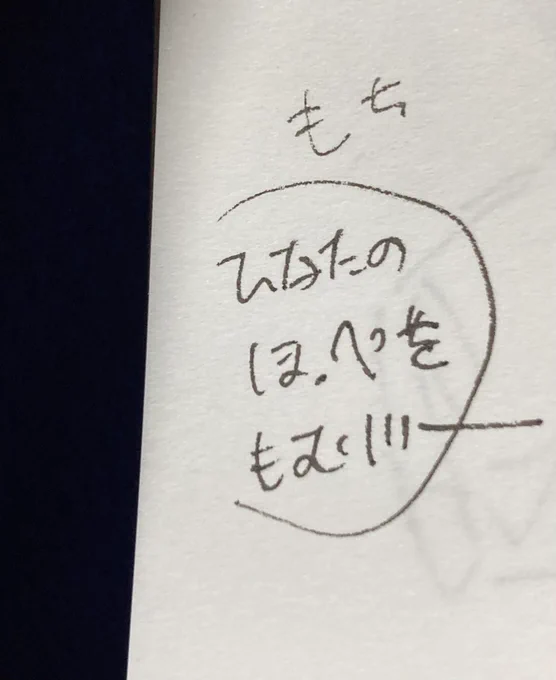 もち
ひなたの
ほっぺを
もむ!!!